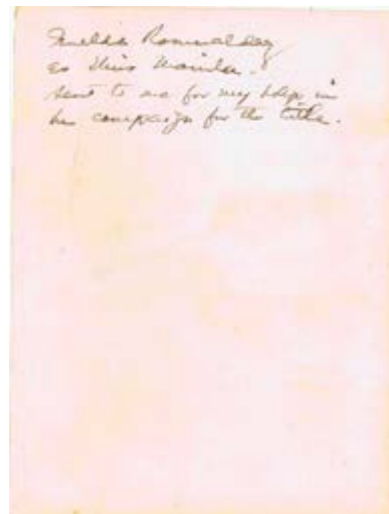 Imelda Romualdez
as Miss Manila.
sent to me for my help in
her campaign for the title.